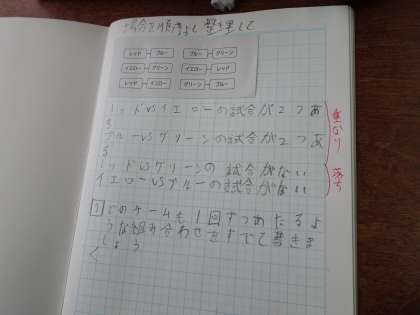 場合を順序よく整理して
レッド ブルー ブルー グリーン
イエロー グリーン レッド イエロー
レッド イエロー グリーン ブルー
レッドvsイエローの試合が2つあ
る
ブルーvsグリーンの試合が2つあ
る
重なり
レッドvsグリーンの試合がない
イエローvsブルーの試合がない
落ち
1 どのチームも1回ずつあたるよ
うな組み合わせをすべて書きま
しょう
く